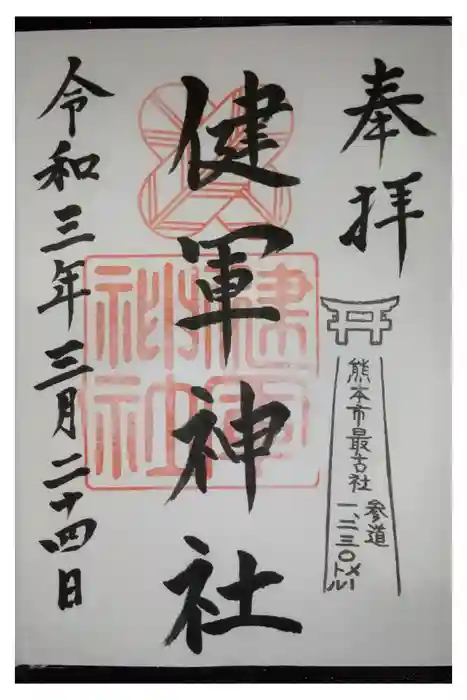 奉拝
熊本市最古社
参道
一、二三〇メートル
健軍神社
令和三年三月二十四日